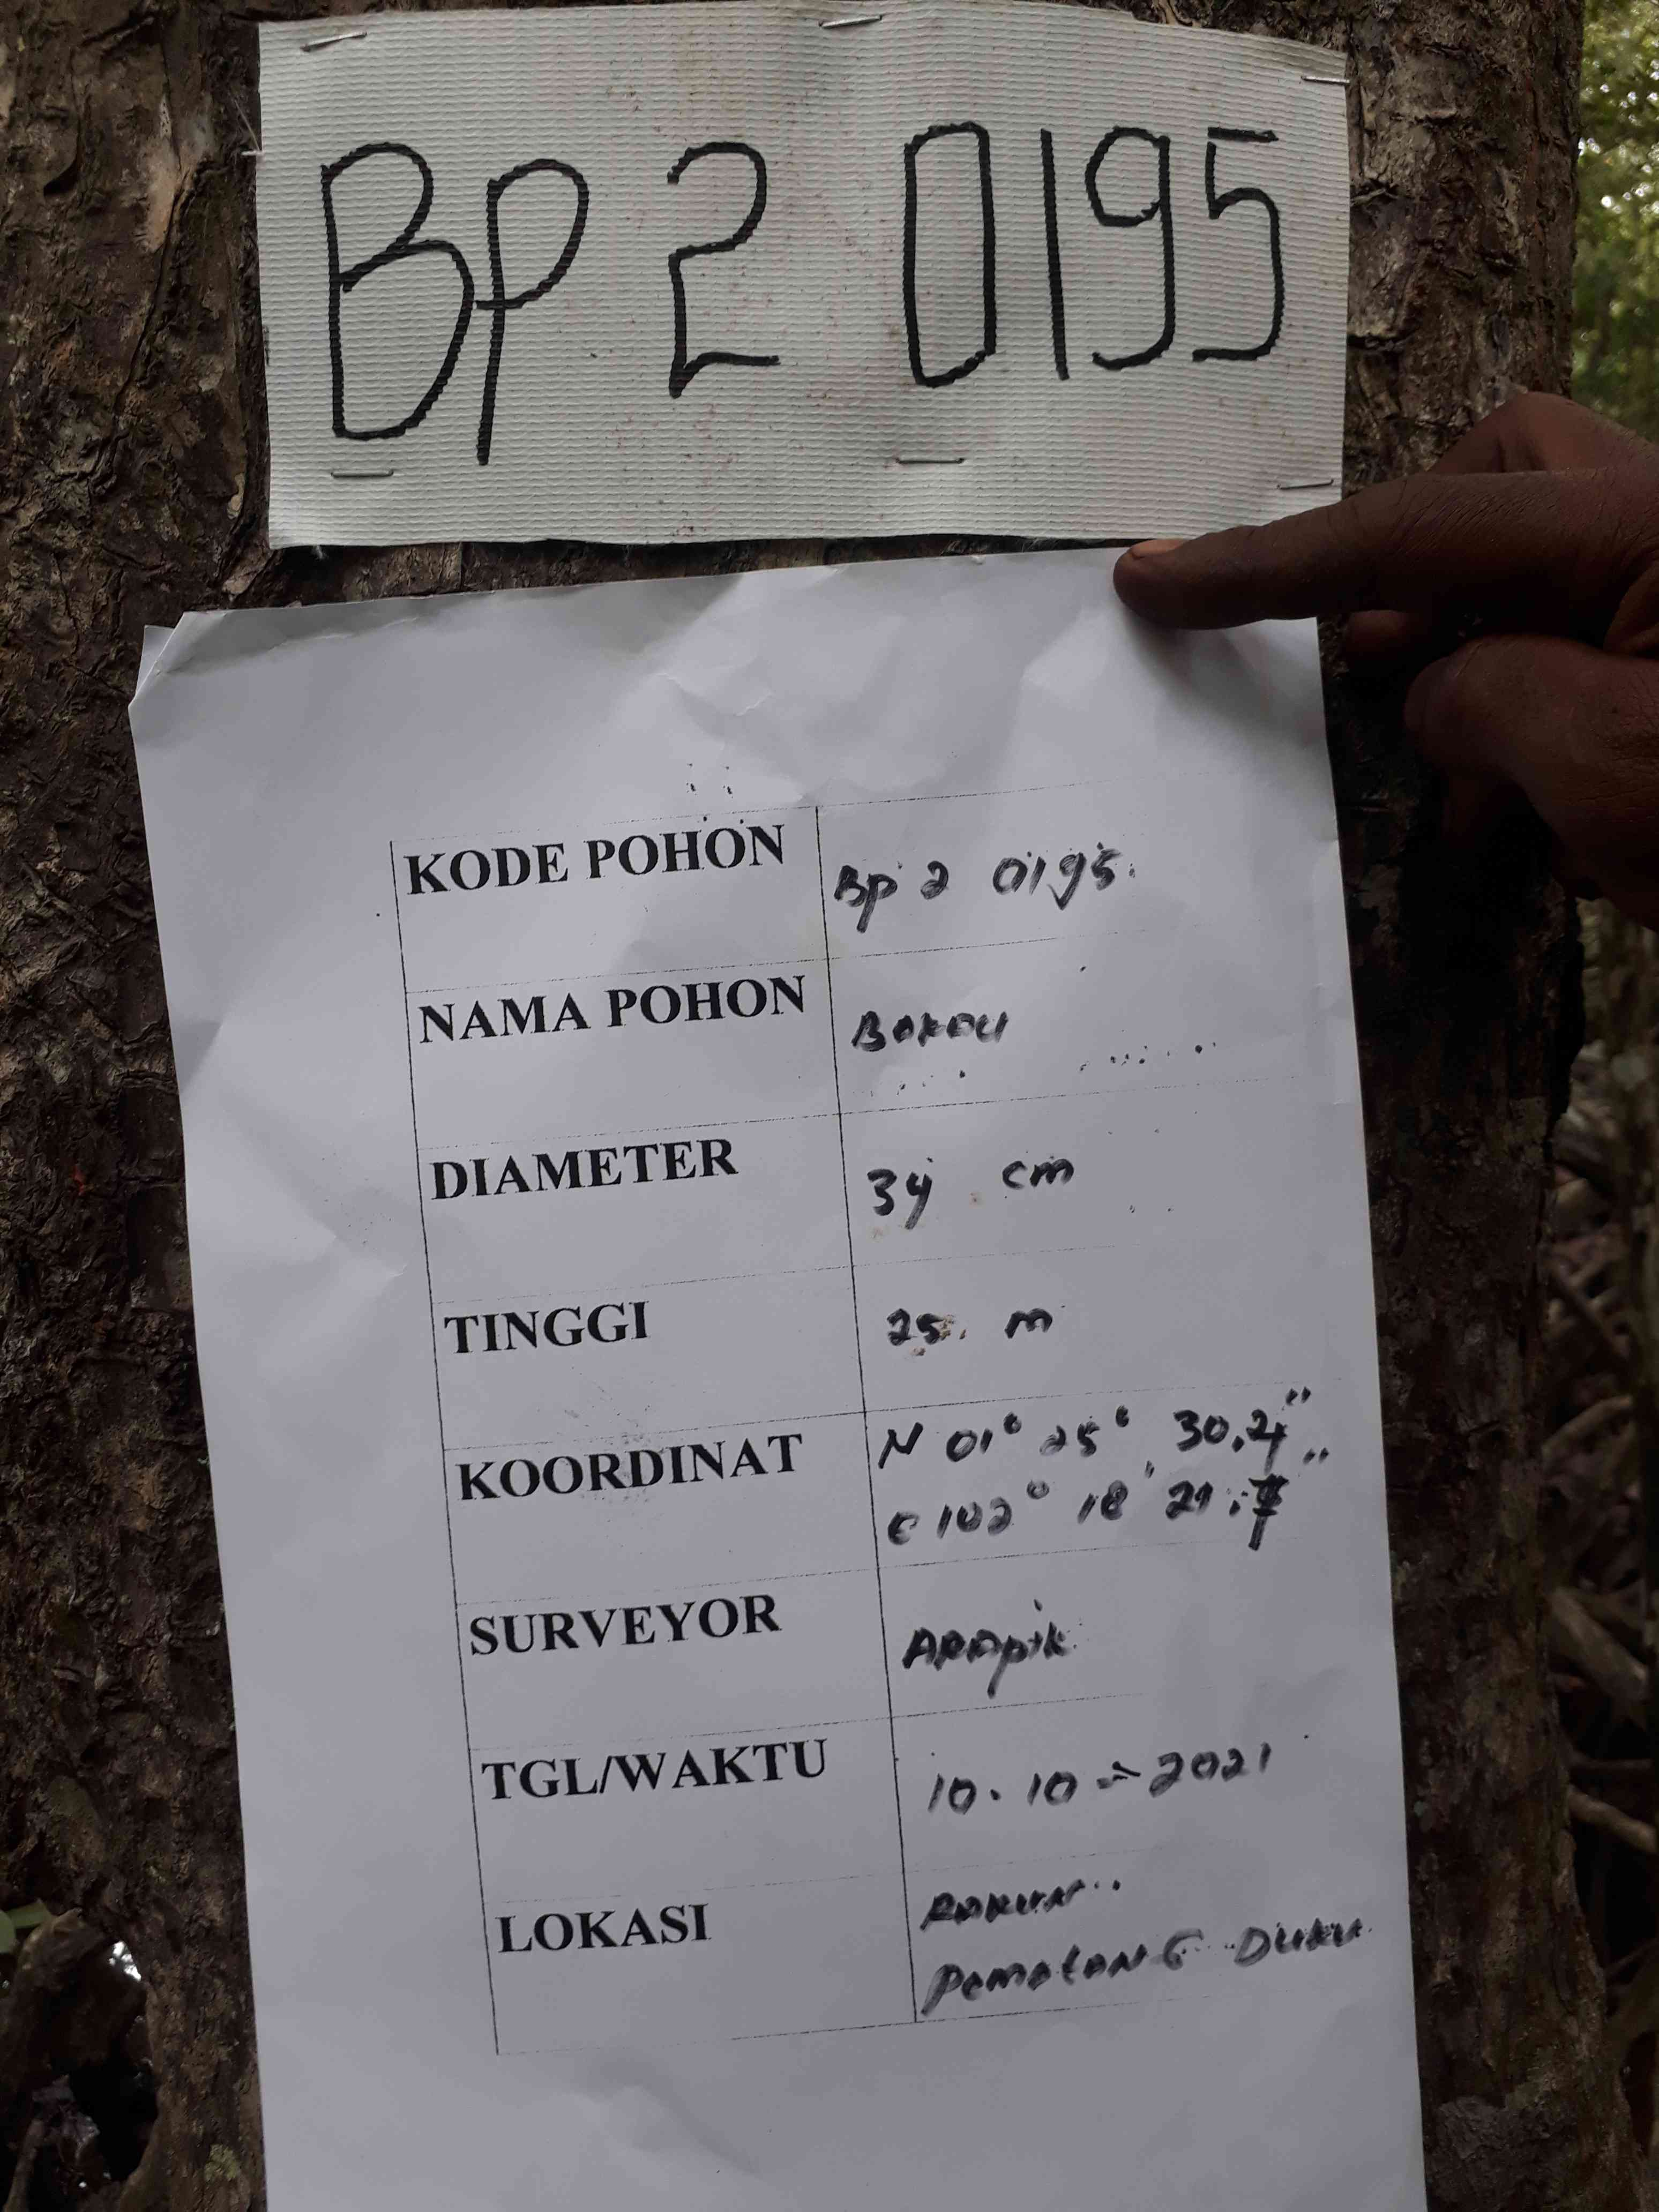 BP 2 0195
KODE POHON Bp 2 0195.
NAMA POHON BAKAU
DIAMETER 34 cm
TINGGI 25 m
KOORDINAT N 01° 25° 30,4"
E 102° 18' 21.7"
SURVEYOR ARApik
TGL/WAKTU 10.10-2021
LOKASI
PemataNG DUKU